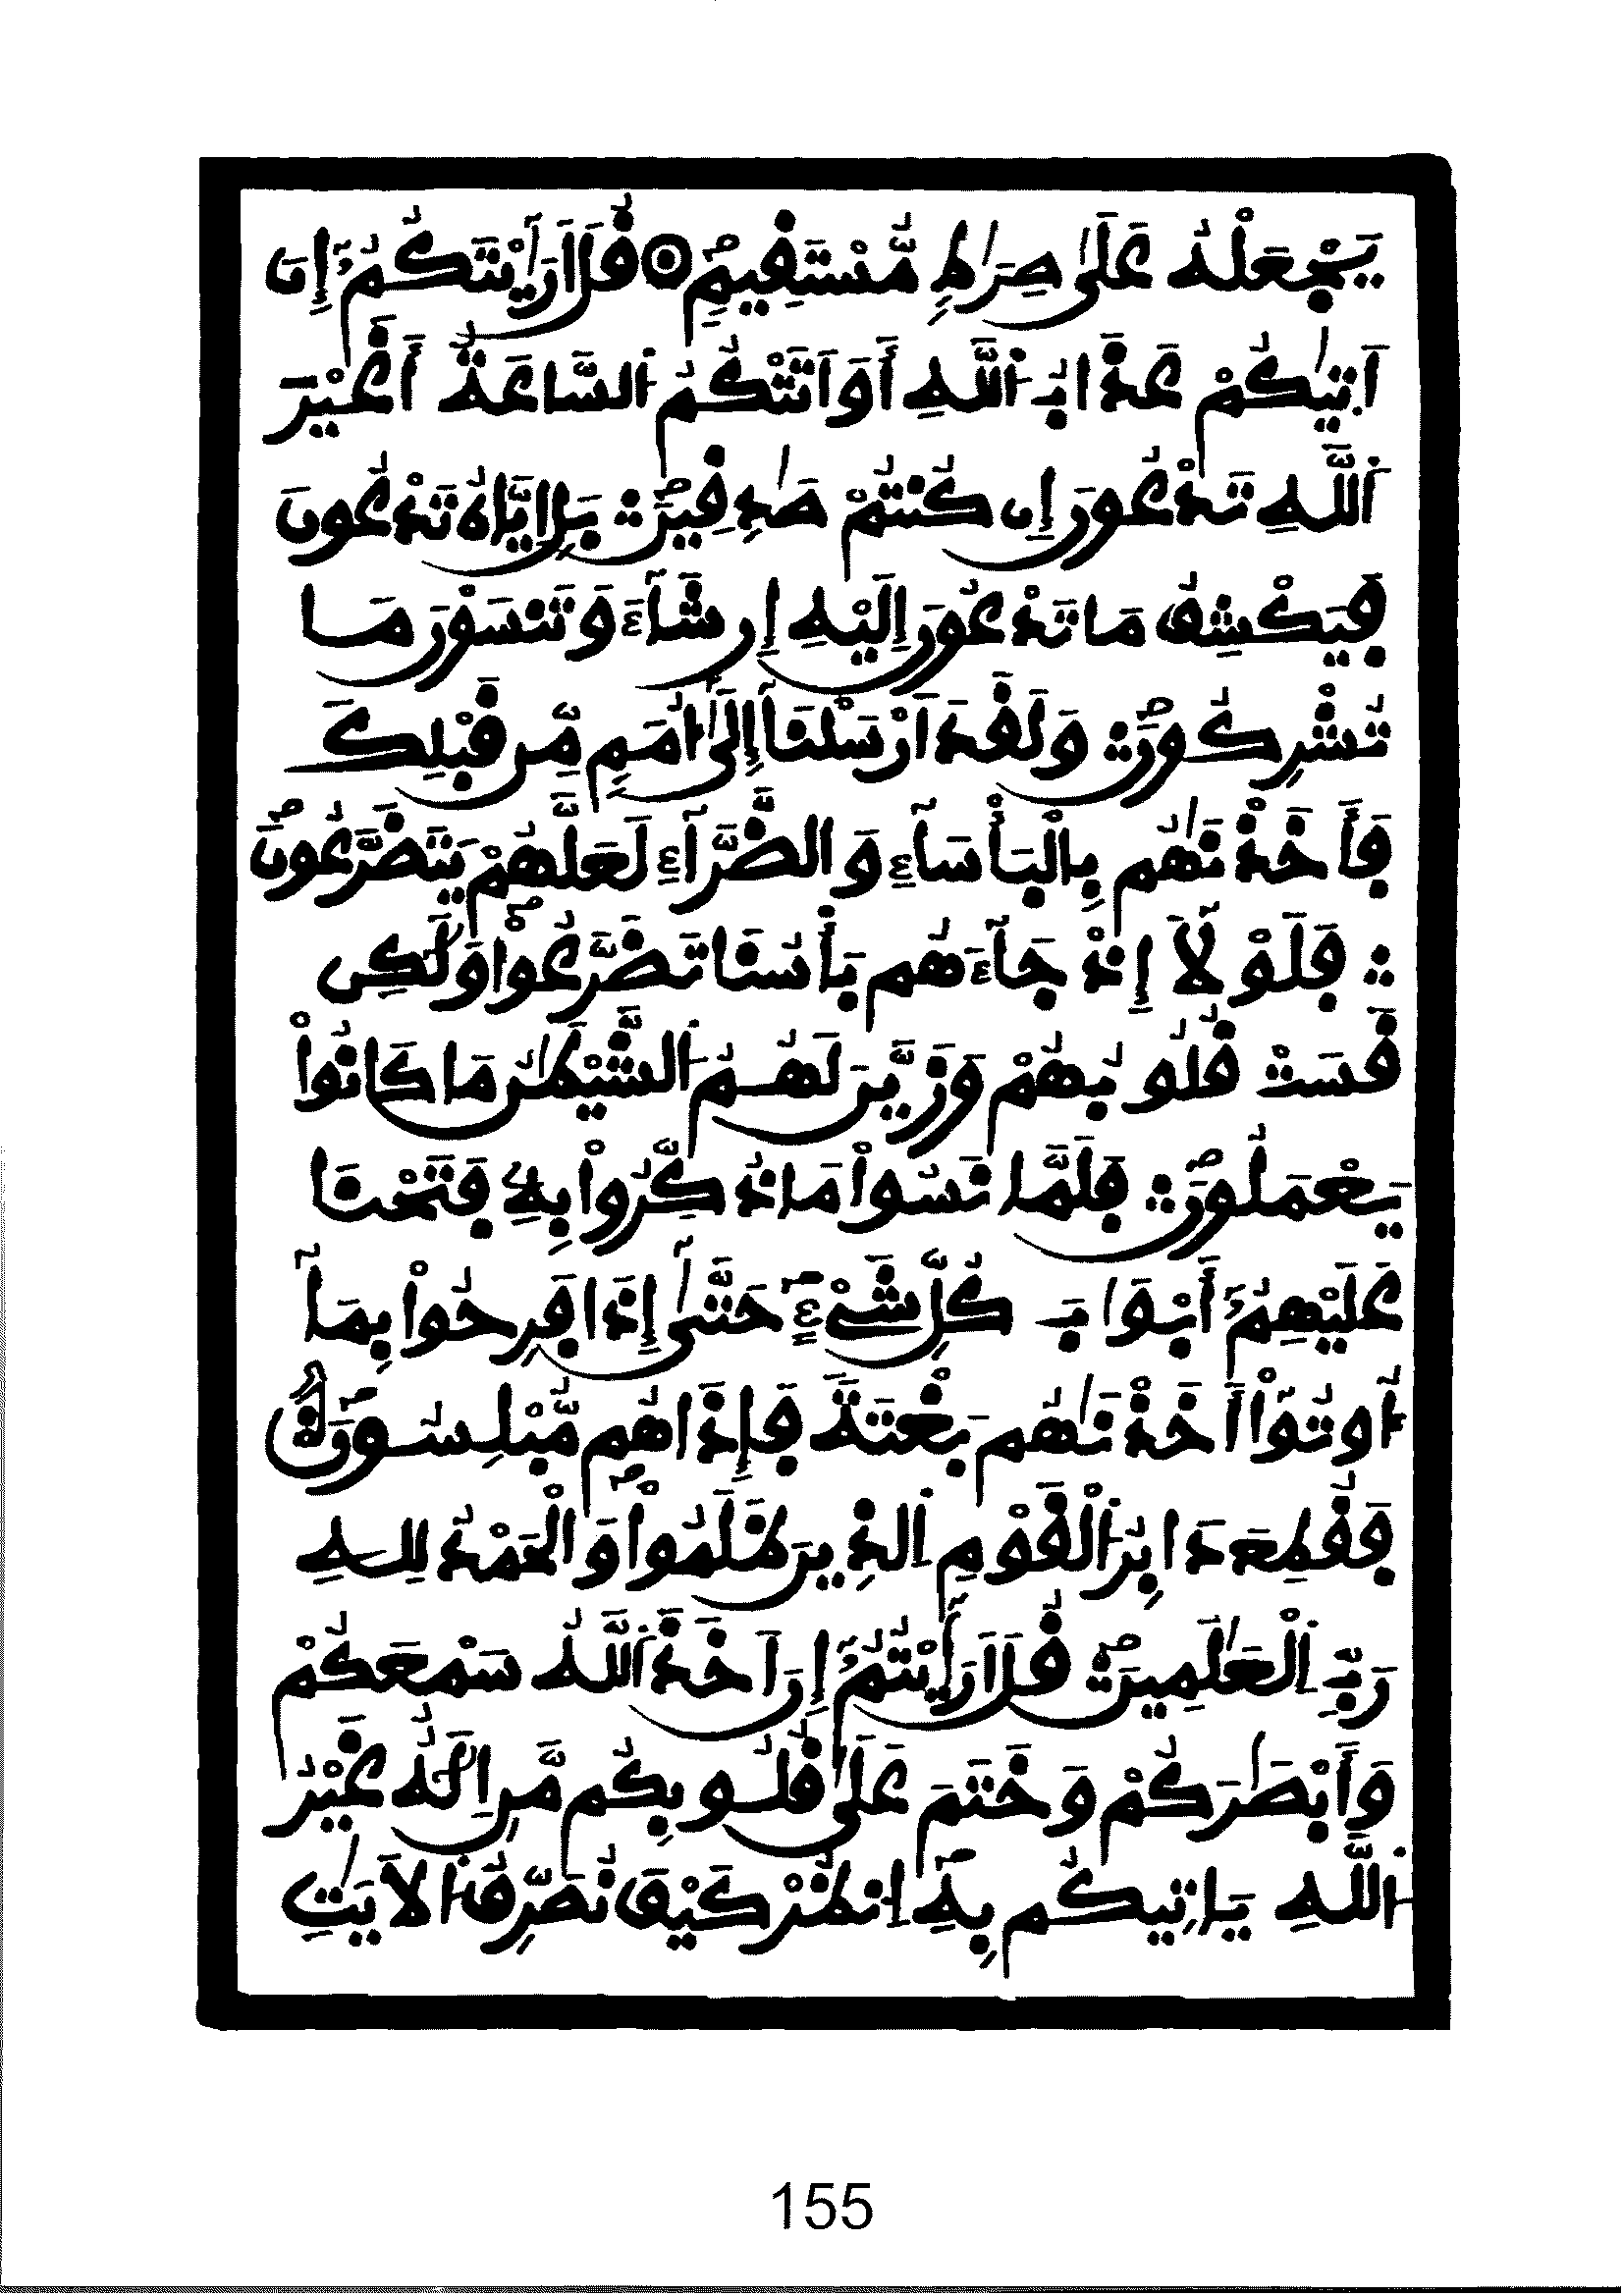 يَجْعَلْهُ عَلَىٰ صِرَٰطٖ مُّسْتَقِيمٖ ۝ قُلَ اَرَٰٓيْتَكُمُۥٓ إِنَ
اَتٜيٰكُمْ عَذَابُ اُ۬للَّهِ أَوَ اَتَتْكُمُ اُ۬لسَّاعَةُ أَغَيْرَ
اَ۬للَّهِ تَدْعُونَ إِن كُنتُمْ صَٰدِقِينَۖ ۝ بَلِ اِيَّاهُ تَدْعُونَ
فَيَكْشِفُ مَا تَدْعُونَ إِلَيْهِ إِن شَآءَ وَتَنسَوْنَ مَا
تُشْرِكُونَۖ ۝ وَلَقَدَ اَرْسَلْنَآ إِلَىٰٓ أُمَمٖ مِّن قَبْلِكَ
فَأَخَذْنَٰهُم بِالْبَأْسَآءِ وَالضَّرَّآءِ لَعَلَّهُمْ يَتَضَرَّعُونَۖ
۝ فَلَوْلَآ إِذْ جَآءَهُم بَأْسُنَا تَضَرَّعُواْۖ وَلَٰكِن
قَسَتْ قُلُوبُهُمْ وَزَيَّنَ لَهُمُ اُ۬لشَّيْطَٰنُ مَا كَانُواْ
يَعْمَلُونَۖ ۝ فَلَمَّا نَسُواْ مَا ذُكِّرُواْ بِهِۦ فَتَحْنَا
عَلَيْهِمُۥٓ أَبْوَٰبَ كُلِّ شَےْءٍۖ حَتَّىٰٓ إِذَا فَرِحُواْ بِمَآ
أُوتُوٓاْ أَخَذْنَٰهُم بَغْتَةٗ فَإِذَا هُم مُّبْلِسُونَۖ ۝
فَقُطِعَ دَابِرُ اُ۬لْقَوْمِ اِ۬لذِينَ ظَلَمُواْۖ وَالْحَمْدُ لِلهِ
رَبِّ اِ۬لْعَٰلَمِينَۖ ۝ قُلَ اَرَٰٓيْتُمُۥٓ إِنَ اَخَذَ اَ۬للَّهُ سَمْعَكُمْ
وَأَبْصَٰرَكُمْ وَخَتَمَ عَلَىٰ قُلُوبِكُم مَّنِ اِلَٰهٌ غَيْرُ
اُ۬للَّهِ يَاتِيكُم بِهِۖ اِ۟نظُرْ كَيْفَ نُصَرِّفُ اُ۬لَايَٰتِ
155